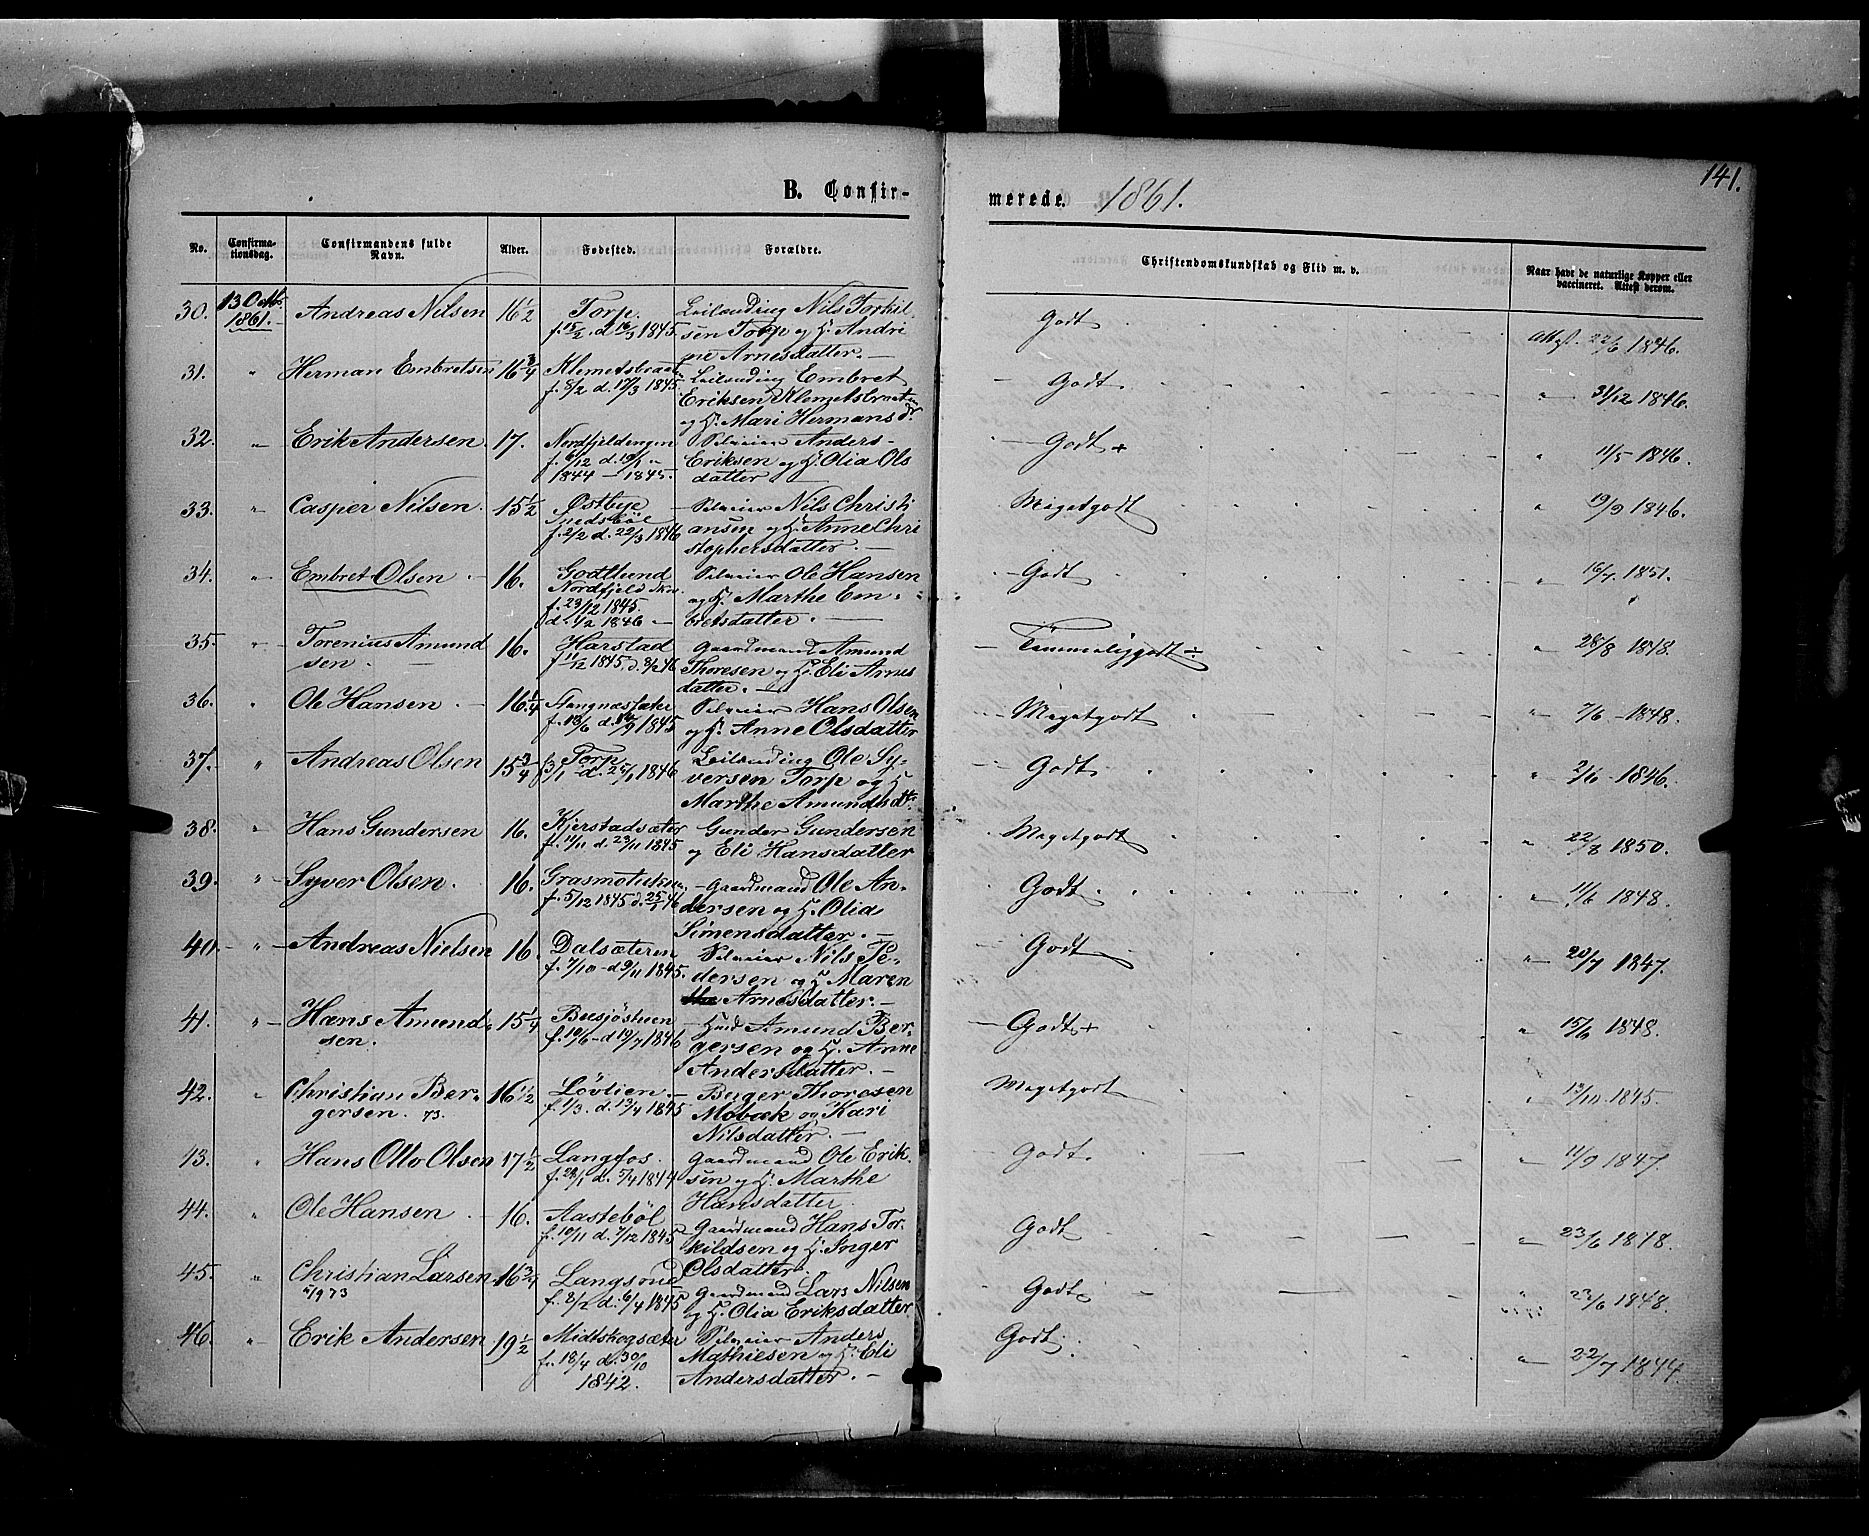 141.
B. Confir- merede. 1861.
No. Confirma- Confirmandens fulde Alder. Fødested. Forældre. Christendomskundskab og Flid m. v. Naar havt de naturlige Kopper eller
tionsdag. Navn. vaccineret. Attest derom.
30. 13 Octb. Andreas Nilsen 16 1/2 Torp. Leilænding Nils Torkil- Godt Attest. 22/6 1846.
1861. f. 15/2. d. 16/3 1845. sen Torp og H. Andri
ne Arnesdatter. —
31. " Herman Embretsen 16 3/4 Klemetsbraaten Leilænding Embret Godt. " 31/12 1846.
f. 8/2 d. 17/3 1845. Eriksen Klemetsbraaten
og H. Mari Hermansdr
32. " Erik Andersen. 17. Nordfjeldengen Pladseier Anders Godt + " 11/5 1846.
f. 6/12 d. 19/1 Eriksen og H. Olia Ols
1844 — 1845. datter
33. " Casper Nilsen. 15 1/2 Østbye Nils Christi Megetgodt " 19/9 1846.
f. 2/2 d. 22/3 1846 ansen og H. Anne Chri
stophersdatter. —
34. " Embret Olsen 16. Godtlund Ole Hansen Godt " 16/7 1851.
Nordfjeld
f. 23/12 1845. og H. Marthe Em-
d. 1/2 1846 — bretsdatter. —
35. " Torenius Amund 16. Harstad Gaardmand Amund Temmeliggodt ÷ " 28/8 1848.
sen. — f. 11/12 1845 d. 8/2 46 Thoresen og H. Eli Arnes
datter. —
36. " Ole Hansen. 16 1/4 Stangnessæter Hans Olsen Megetgodt " 7/6 1848.
f. 13/6 d. 14/9 1845 og H. Anne Olsdatter
37. " Andreas Olsen 15 3/4 Torp Leilænding Ole Sy- Godt "  1846.
3/1 d. 25/1 1846 versen Torp og H.
Marthe Amundsdtr
38. " Hans Gundersen 16. Kjerstadsæter Gunder Gundersen Megetgodt " 22/8 1850.
f. 11/11 d. 23/11 1845 og Eli Hansdatter
39. " Syver Olsen. 16. Gaardmand Ole An- Godt " 11/6 1848.
f. 5/12 1845 d. 25/1 46 dersen og H. Olia
Simensdatter. —
40. " Andreas Nielsen 16. Dalsæteren Nils Pe- Godt " 20/7 1847.
f. 7/10 — d 9/11 1845. dersen og H Maren
Arnesdatter. —
41. " Hans Amund 15 1/4 Busjöstuen Amund Ber- Godt + " 15/6 1848.
sen. f. 10/6 — d 19/7 1846 gersen og H. Anne
Andersdatter. —
42. " Christian Ber- 16 1/2 Lövlien. — Berger Thorasen Megetgodt " 13/10 1845.
gersen. 73. f. 1/3. d. 13/4 1845 Möbæk og Kari
Nilsdatter. —
13. " Hans Otto Olsen 17 1/2 Langfos. Gaardmand Ole Erik Godt. " 11/9 1847.
f. 28/1 d. 5/4 1844 sen og H. Marthe
Hansdatter.
44. " Ole Hansen. 16. Aastebøl Gaardmand Hans Tor Godt " 23/6 1848.
f. 10/11 d. 7/12 1845 kildsen og H. Inger
Olsdatter.
45. " Christian Larsen 16 3/4 Langsoue Gaardmand Lars Nilsen Godt " 23/6 1848.
5/9 73 f. 8/2 d. 6/4 1845 og H. Olia Eriksdatter
46. " Erik Andersen 19 1/2 Midtskogsæter Anders Godt. " 22/7 1844.
f. 18/4 d. 30/10 Mathiesen og H. Eli
1842. Andersdatter. —